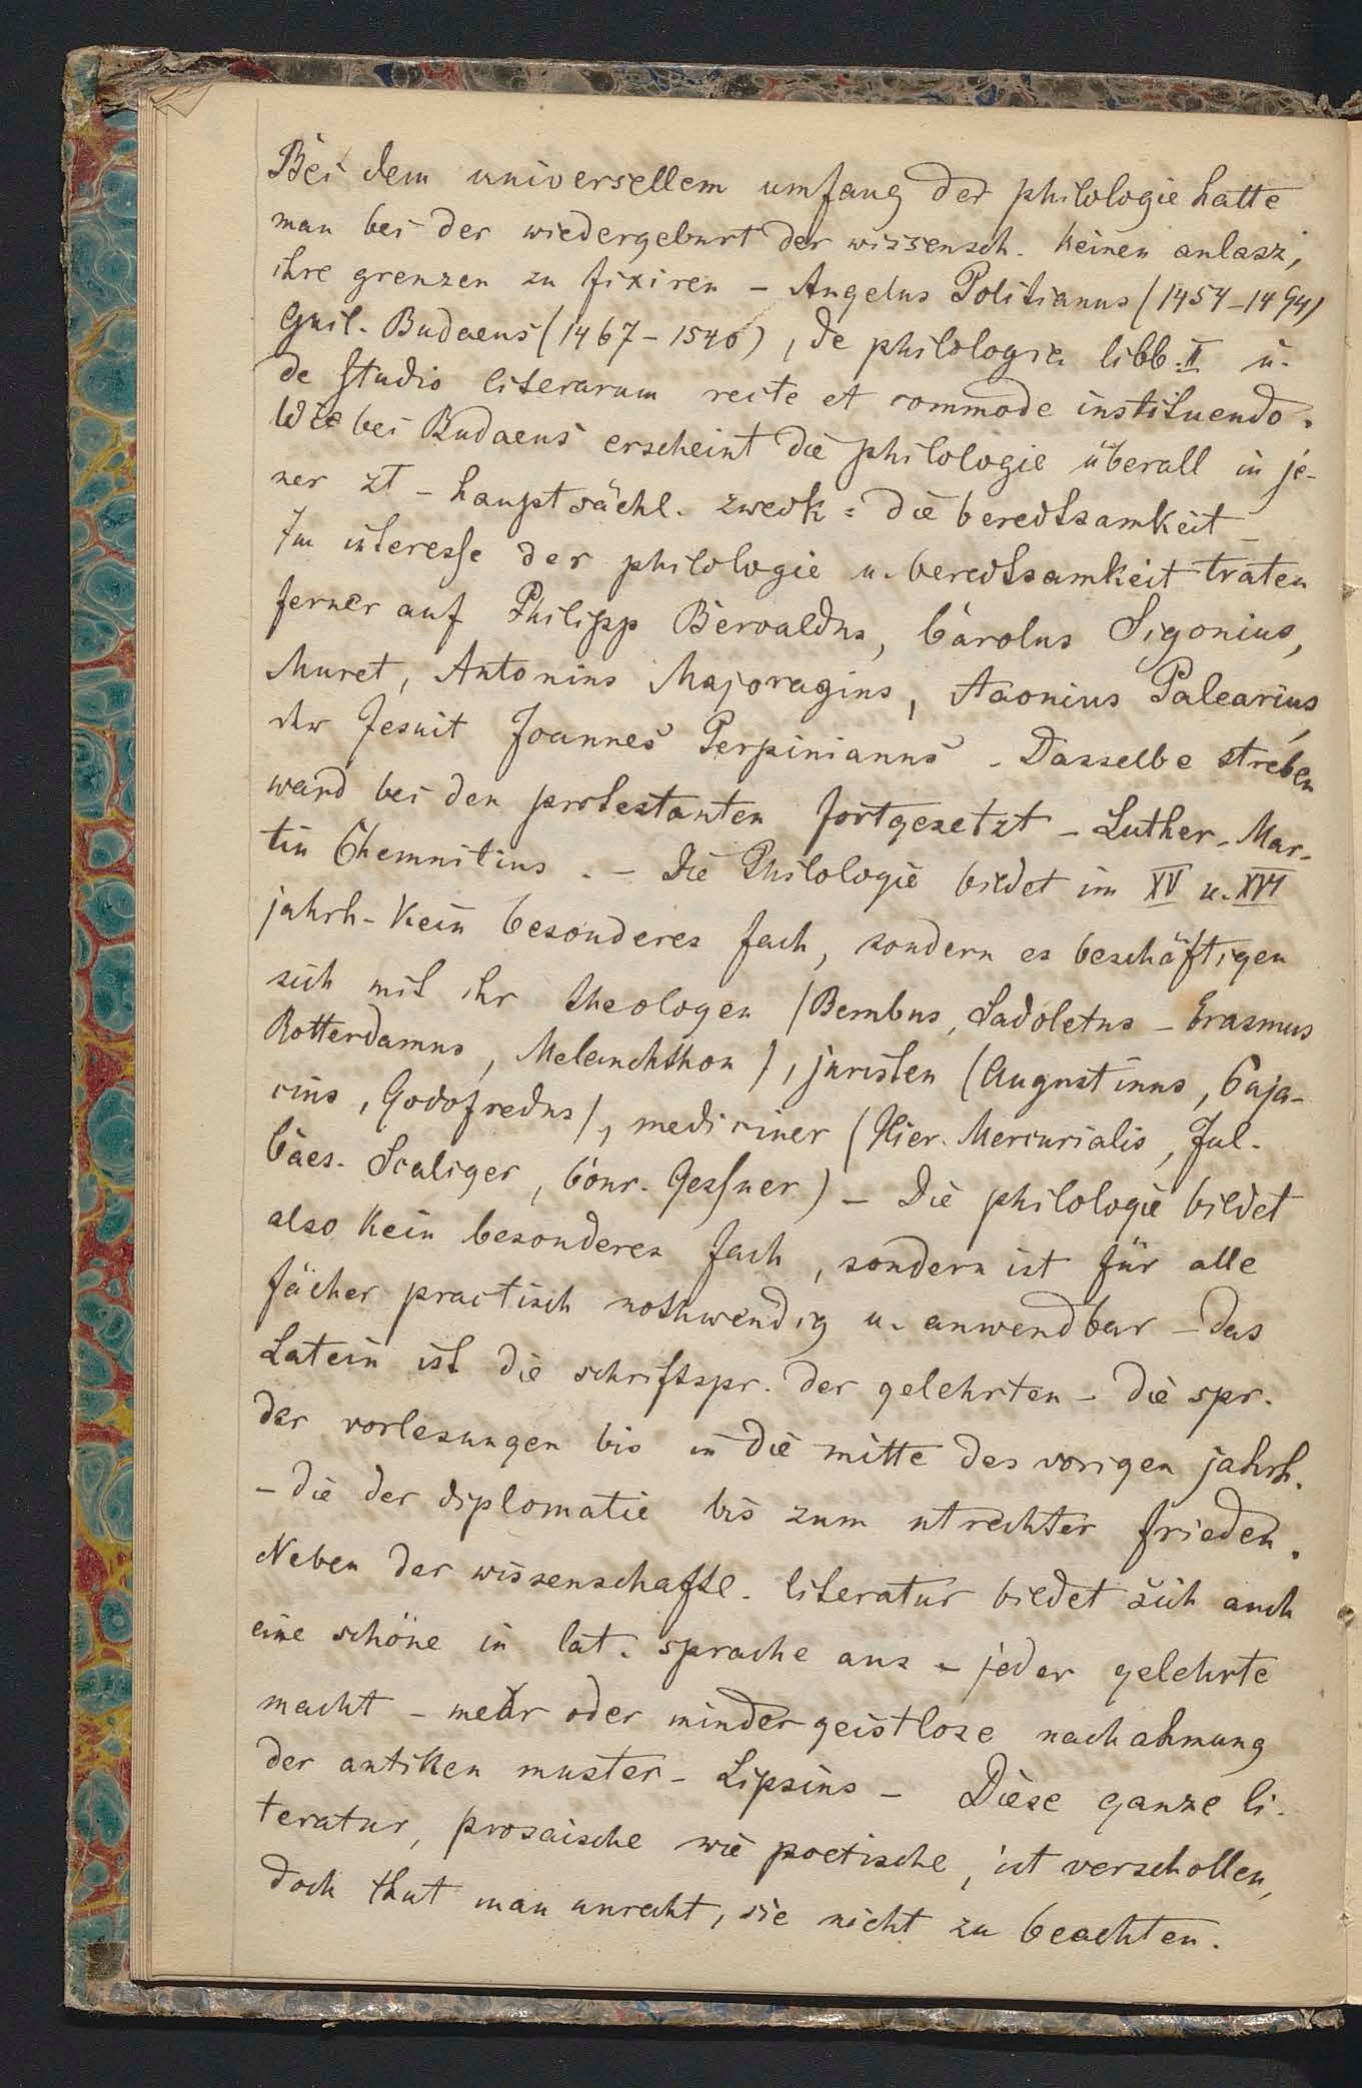 Bei dem universellem umfang der philologie hatte
man bei der wiedergeburt der wissensch. keinen anlasz,
ihre grenzen zu fixiren – Angelus Politianus (1454–1494)
Guil. Budaeus (1467–1540), de philologia libb. II u.
de studio literarum recte et commode instituendo.
Wie bei Budaeus erscheint die philologie überall in je-
ner zt – hauptsächl. zweck = die beredtsamkeit –
Im interesse der philologie u. beredtsamkeit traten
ferner auf Philipp Beroaldus, Carolus Sigonius,
Muret, Antonius Majoragius, Aaonius Palearius,
der Jesuit Joannes Perpinianus – Dasselbe streben
ward bei den protestanten fortgesetzt – Luther – Mar-
tin Chemnitius. – Die Philologie bildet im XV u. XVI
jahrh. kein besonderes fach, sondern es beschäftigen
sich mit ihr theologen (Bembus, Sadoletus – Erasmus
Rotterdamus, Melanchthon), juristen (Augustinus, Cuja-
cius, Godofredus), mediciner (Hier. Mercurialis, Jul.
Caes. Scaliger, Conr. Gessner) – Die philologie bildet
also kein besonderes fach, sondern ist für alle
fächer practisch nothwendig u. anwendbar – das
Latein ist die schriftspr. der gelehrten – die spr.
der vorlesungen bis in die mitte des vorigen jahrh.
– die der diplomatie bis zum utrechter frieden.
Neben der wissenschaftl. literatur bildet sich auch
eine schöne in lat. sprache aus – jeder gelehrte
macht – mehr oder minder geistlose nachahmung
der antiken muster – Lipsius – Diese ganze li-
teratur, prosaische wie poetische, ist verschollen,
doch thut man unrecht, sie nicht zu beachten.